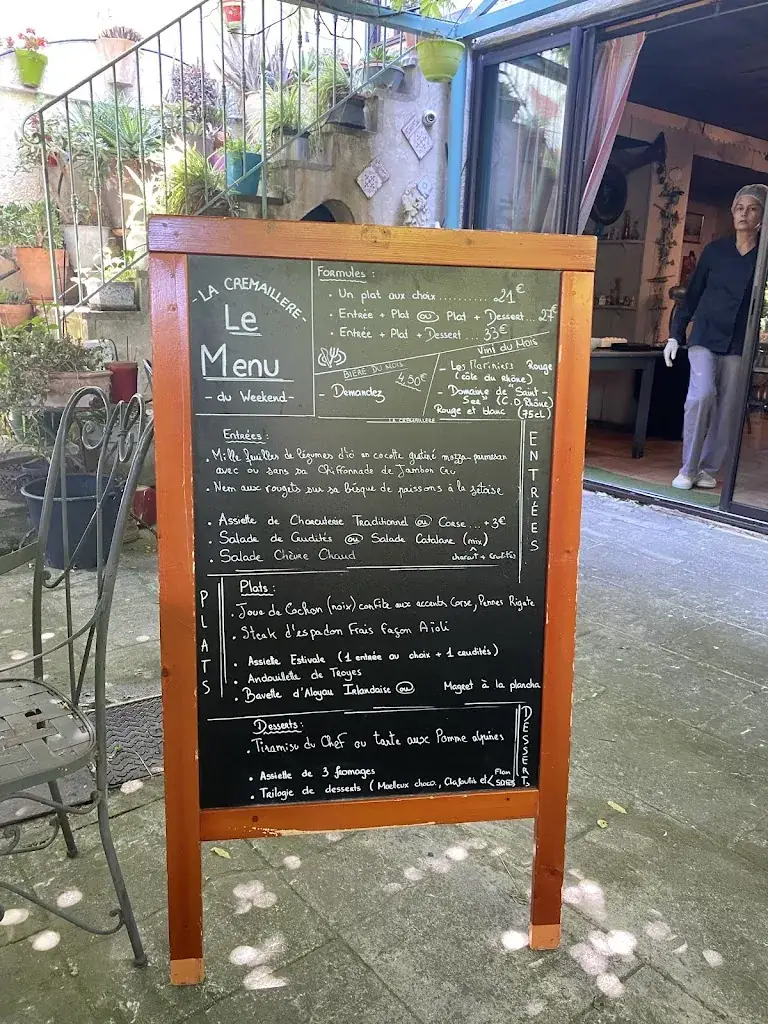 - LA CREMAILLERE -
Le
Menu
- du Weekend -
Formules :
• Un plat aux choix .......... 21€
• Entrée + Plat ou Plat + Dessert ... 27€
• Entrée + Plat + Dessert .... 33€
BIERE DU MOIS
- Demandez 4,50€
Vini du Mois
- Les Mariniers Rouge
(côte du Rhône)
- Domaine de "Saint-
(C.D.Rhône)
Rouge et blanc (75cl)
LA CREMAILLERE
Entrées :
• Mille feuilles de légumes d'été en cocotte gratiné mozza-parmesan
avec ou sans sa Chiffonnade de Jambon Cru
• Nem aux rougets sur sa bisque de poissons à la sétoise
• Assiette de Charcuterie Traditionnel ou Corse ... +3€
• Salade de Crudités ou Salade Catalane (mix)
• Salade Chèvre Chaud
ENTRÉES
Plats :
• Joue de Cochon (noix) confite aux accents Corse, Pennes Rigate
• Steak d'espadon Frais façon Aïoli
• Assiette Estivale (1 entrée au choix + 1 crudités)
• Andouillette de Troyes
• Bavette d'Aloyau Irlandaise ou Magret à la plancha
PLATS
Desserts :
• Tiramisu du Chef ou tarte aux Pomme alpines
• Assiette de 3 fromages
• Trilogie de desserts (Moelleux choco, Clafoutis et Flan
DESSERTS